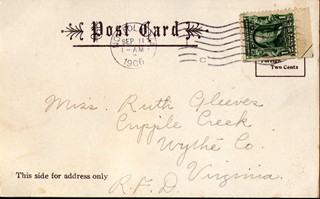 Post Card
SEP 11
1-AM
1906
C
Two Cents
Miss. Ruth Gleeves
Cripple Creek
Wythe Co.
Virginia.
This side for address only
R.F.D.